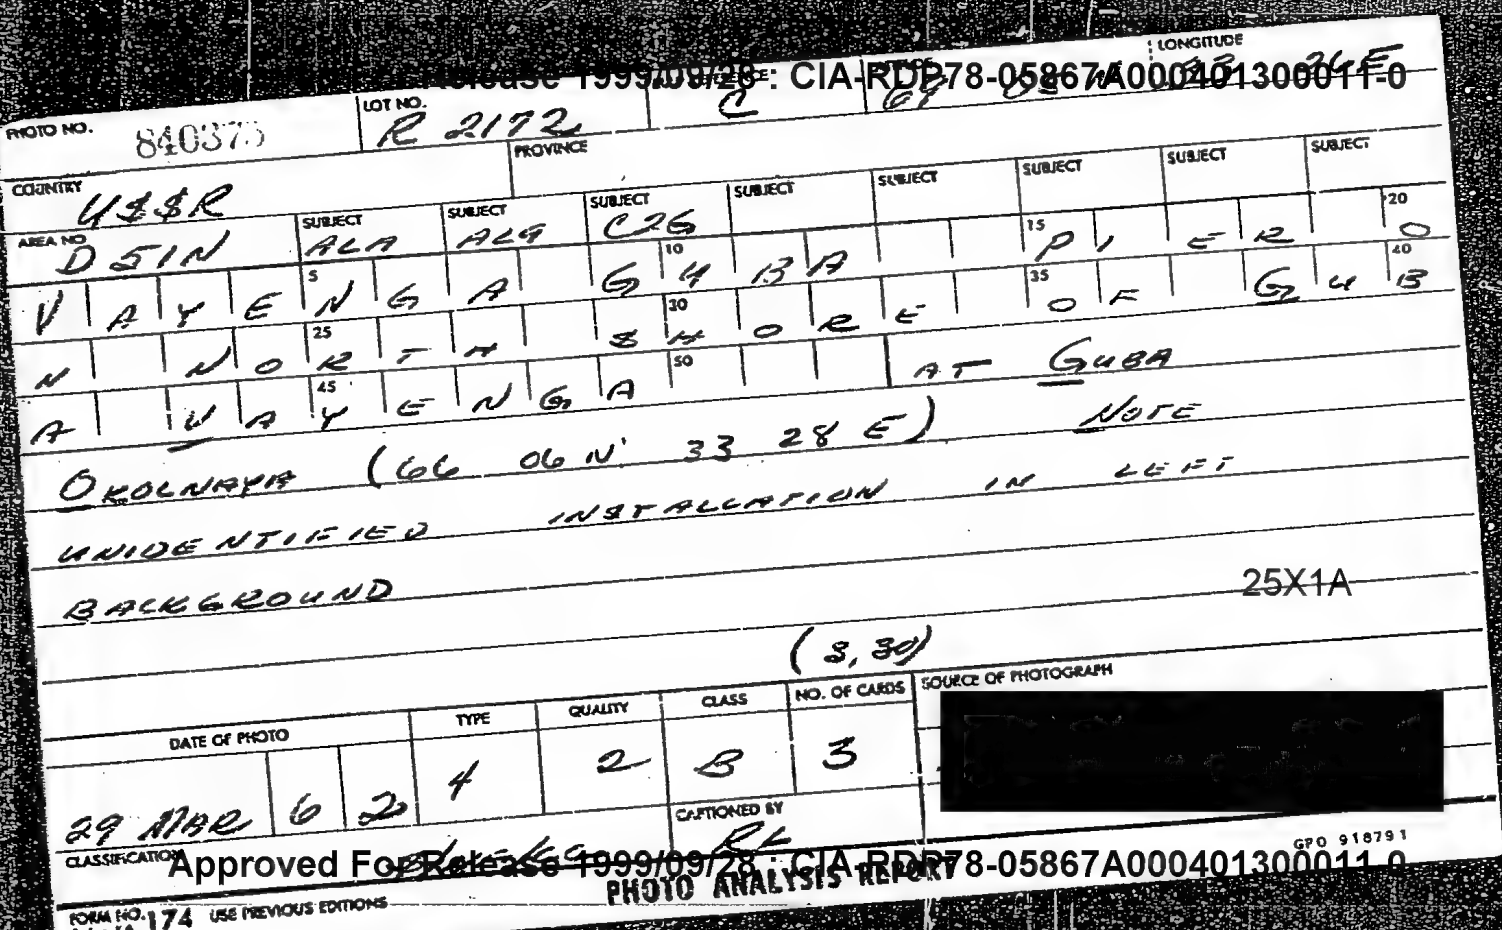 Release 1999/09/28 : CIA-RDP78-05867A000401300011-0
LONGITUDE
PHOTO NO. 840375 LOT NO. R 2172 C 69 33 26 E
COUNTRY U$$R PROVINCE
AREA NO. D 51N SUBJECT ALA SUBJECT ALG SUBJECT C26 SUBJECT SUBJECT SUBJECT SUBJECT SUBJECT
VAYENGA GUBA PIER O
5 10 15 20
N NORTH SHORE OF GUB
25 30 35 40
A VAYENGA AT GUBA
45 50
OKOLNAYA (66 06 N 33 28 E) NOTE
UNIDENTIFIED INSTALLATION IN LEFT
BACKGROUND
25X1A
(3,30)
DATE OF PHOTO TYPE QUALITY CLASS NO. OF CARDS SOURCE OF PHOTOGRAPH
29 MAR 62 4 2 B 3
CAPTIONED BY RL
GPO 918791
CLASSIFICATION
Approved For Release 1999/09/28 : CIA-RDP78-05867A000401300011-0
PHOTO ANALYSIS REPORT
FORM NO. 174 USE PREVIOUS EDITIONS